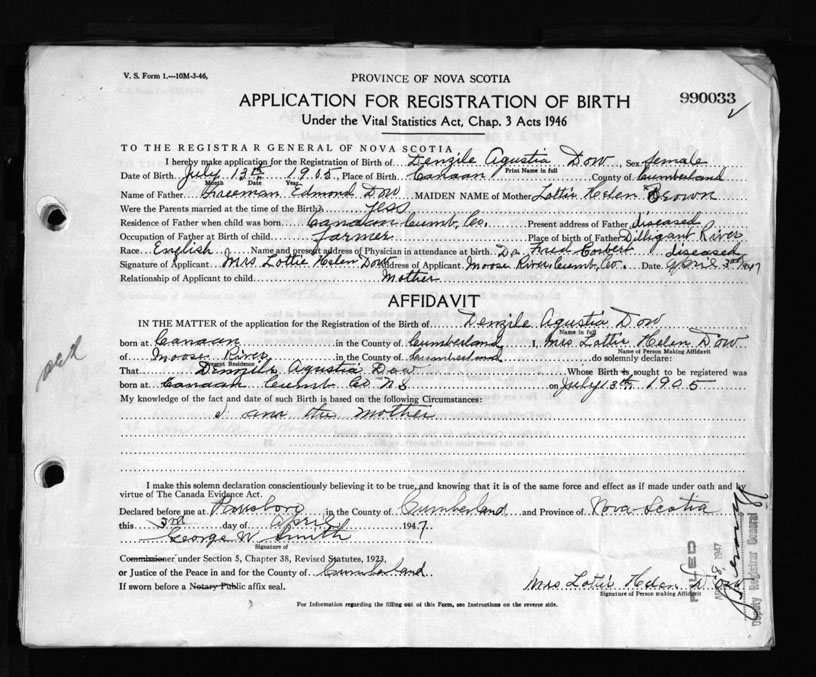 V. S. Form 1.—10M-3-46.
PROVINCE OF NOVA SCOTIA
APPLICATION FOR REGISTRATION OF BIRTH
990033
Under the Vital Statistics Act, Chap. 3 Acts 1946
TO THE REGISTRAR GENERAL OF NOVA SCOTIA
I hereby make application for the Registration of Birth of Denzile Agustia Dow, Sex female
Print Name in full
Date of Birth July 13th 1905, Place of Birth Canaan County of Cumberland
Month Date Year
Name of Father Edmond Dow MAIDEN NAME of Mother Lottie Helen Brown
Were the Parents married at the time of the Birth? yess
Residence of Father when child was born Canaan Cumb. Co. Present address of Father diseased
Occupation of Father at Birth of child farmer Place of birth of Father Dilligant River
Race English Name and present address of Physician in attendance at birth Dr. Fred diseased
Signature of Applicant Mrs Lottie Helen Dow Address of Applicant Moose River Cumb. Co. Date April 3rd 1947
Relationship of Applicant to child Mother
AFFIDAVIT
IN THE MATTER of the application for the Registration of the Birth of Denzile Agustia Dow
Name in full
born at Canaan in the County of Cumberland I, Mrs Lottie Helen Dow
Name of Person Making Affidavit
of Moose River in the County of Cumberland do solemnly declare:
Present Residence
That Denzile Agustia Dow Whose Birth is sought to be registered was
born at Canaan Cumb Co N.S on July 13th 1905
My knowledge of the fact and date of such Birth is based on the following Circumstances:
I am the mother
I make this solemn declaration conscientiously believing it to be true, and knowing that it is of the same force and effect as if made under oath and by
virtue of The Canada Evidence Act.
Declared before me at Parrsboro in the County of Cumberland and Province of Nova Scotia
this 3rd day of April 1947.
George W Smith
Signature of
Commissioner under Section 5, Chapter 38, Revised Statutes, 1923,
or Justice of the Peace in and for the County of Cumberland
If sworn before a Notary Public affix seal.
Mrs Lottie Helen Dow
Signature of Person making Affidavit
For Information regarding the filling out of this Form, see Instructions on the reverse side.
FILED
1947
Deputy Registrar General